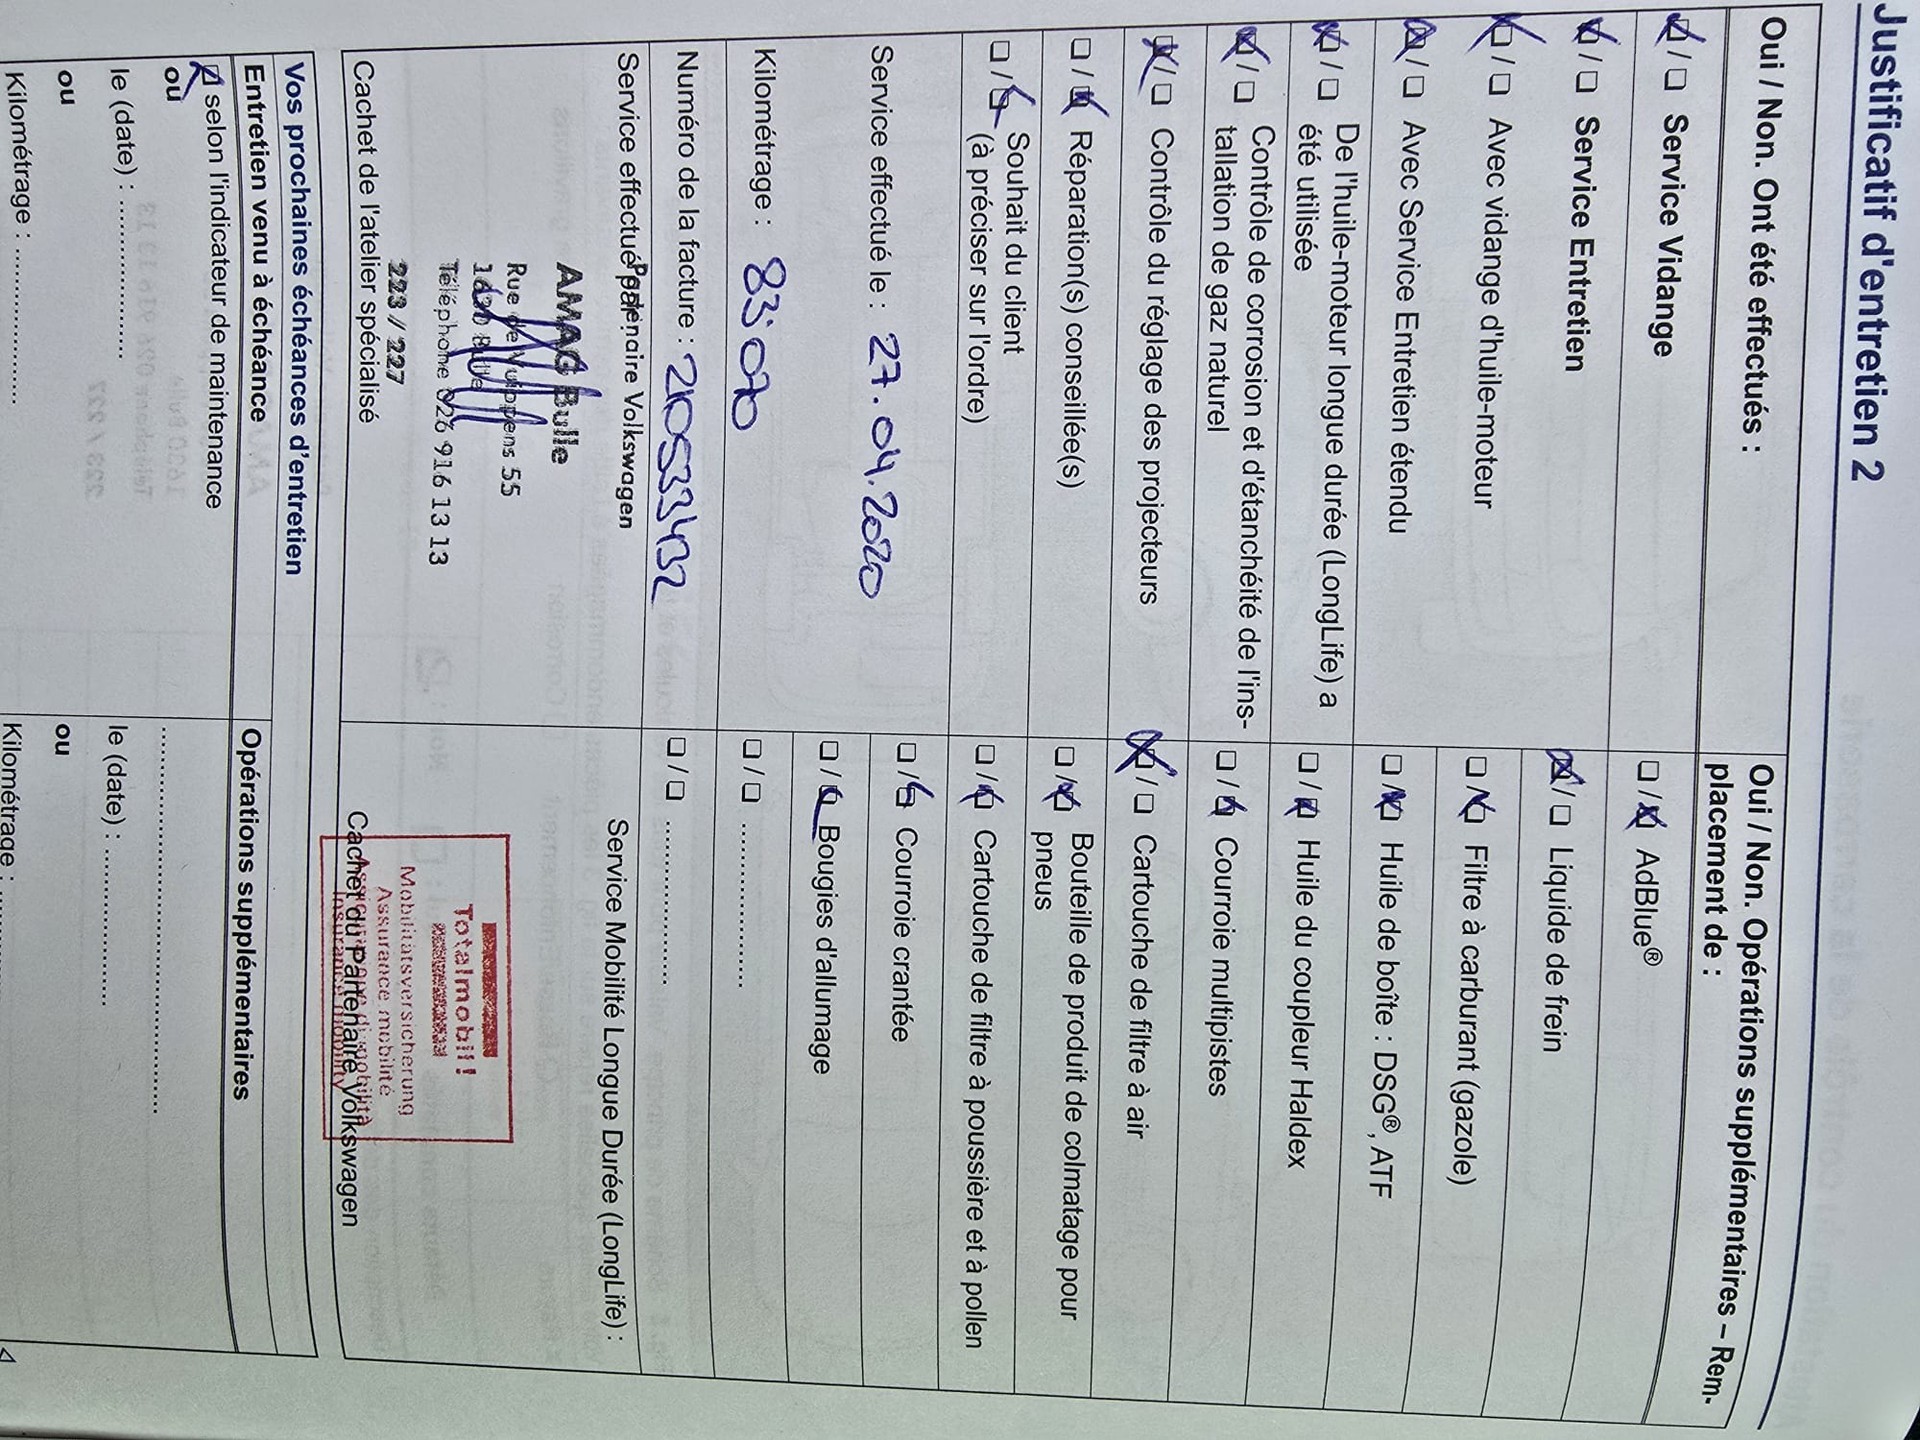 Justificatif d'entretien 2
Oui / Non. Ont été effectués :
☒ / ☐ Service Vidange
☒ / ☐ Service Entretien
☒ / ☐ Avec vidange d'huile-moteur
☒ / ☐ Avec Service Entretien étendu
☒ / ☐ De l'huile-moteur longue durée (LongLife) a
été utilisée
☒ / ☐ Contrôle de corrosion et d'étanchéité de l'ins-
tallation de gaz naturel
☒ / ☐ Contrôle du réglage des projecteurs
☐ / ☒ Réparation(s) conseillée(s)
☐ / ☒ Souhait du client
(à préciser sur l'ordre)
Service effectué le : 27.04.2020
Kilométrage : 83'070
Numéro de la facture : 210533432
Service effectué par :
Partenaire Volkswagen
AMAG Bulle
Rue de Vuippens 55
1630 Bulle
Téléphone 026 916 13 13
223 / 227
Cachet de l'atelier spécialisé
Oui / Non. Opérations supplémentaires – Rem-
placement de :
☐ / ☒ AdBlue®
☒ / ☐ Liquide de frein
☐ / ☒ Filtre à carburant (gazole)
☐ / ☒ Huile de boîte : DSG®, ATF
☐ / ☒ Huile du coupleur Haldex
☐ / ☒ Courroie multipistes
☒ / ☐ Cartouche de filtre à air
☐ / ☒ Bouteille de produit de colmatage pour
pneus
☐ / ☒ Cartouche de filtre à poussière et à pollen
☐ / ☒ Courroie crantée
☐ / ☒ Bougies d'allumage
☐ / ☐ ....................
☐ / ☐ ....................
Service Mobilité Longue Durée (LongLife) :
Totalmobil!
Mobilitätsversicherung
Assurance mobilité
Assicurazione di mobilità
Insurance mobility
Cachet du Partenaire Volkswagen
Vos prochaines échéances d'entretien
Entretien venu à échéance
☒ selon l'indicateur de maintenance
ou
le (date) : ....................
ou
Kilométrage : ....................
Opérations supplémentaires
............................................
le (date) : ....................
ou
Kilométrage : ....................